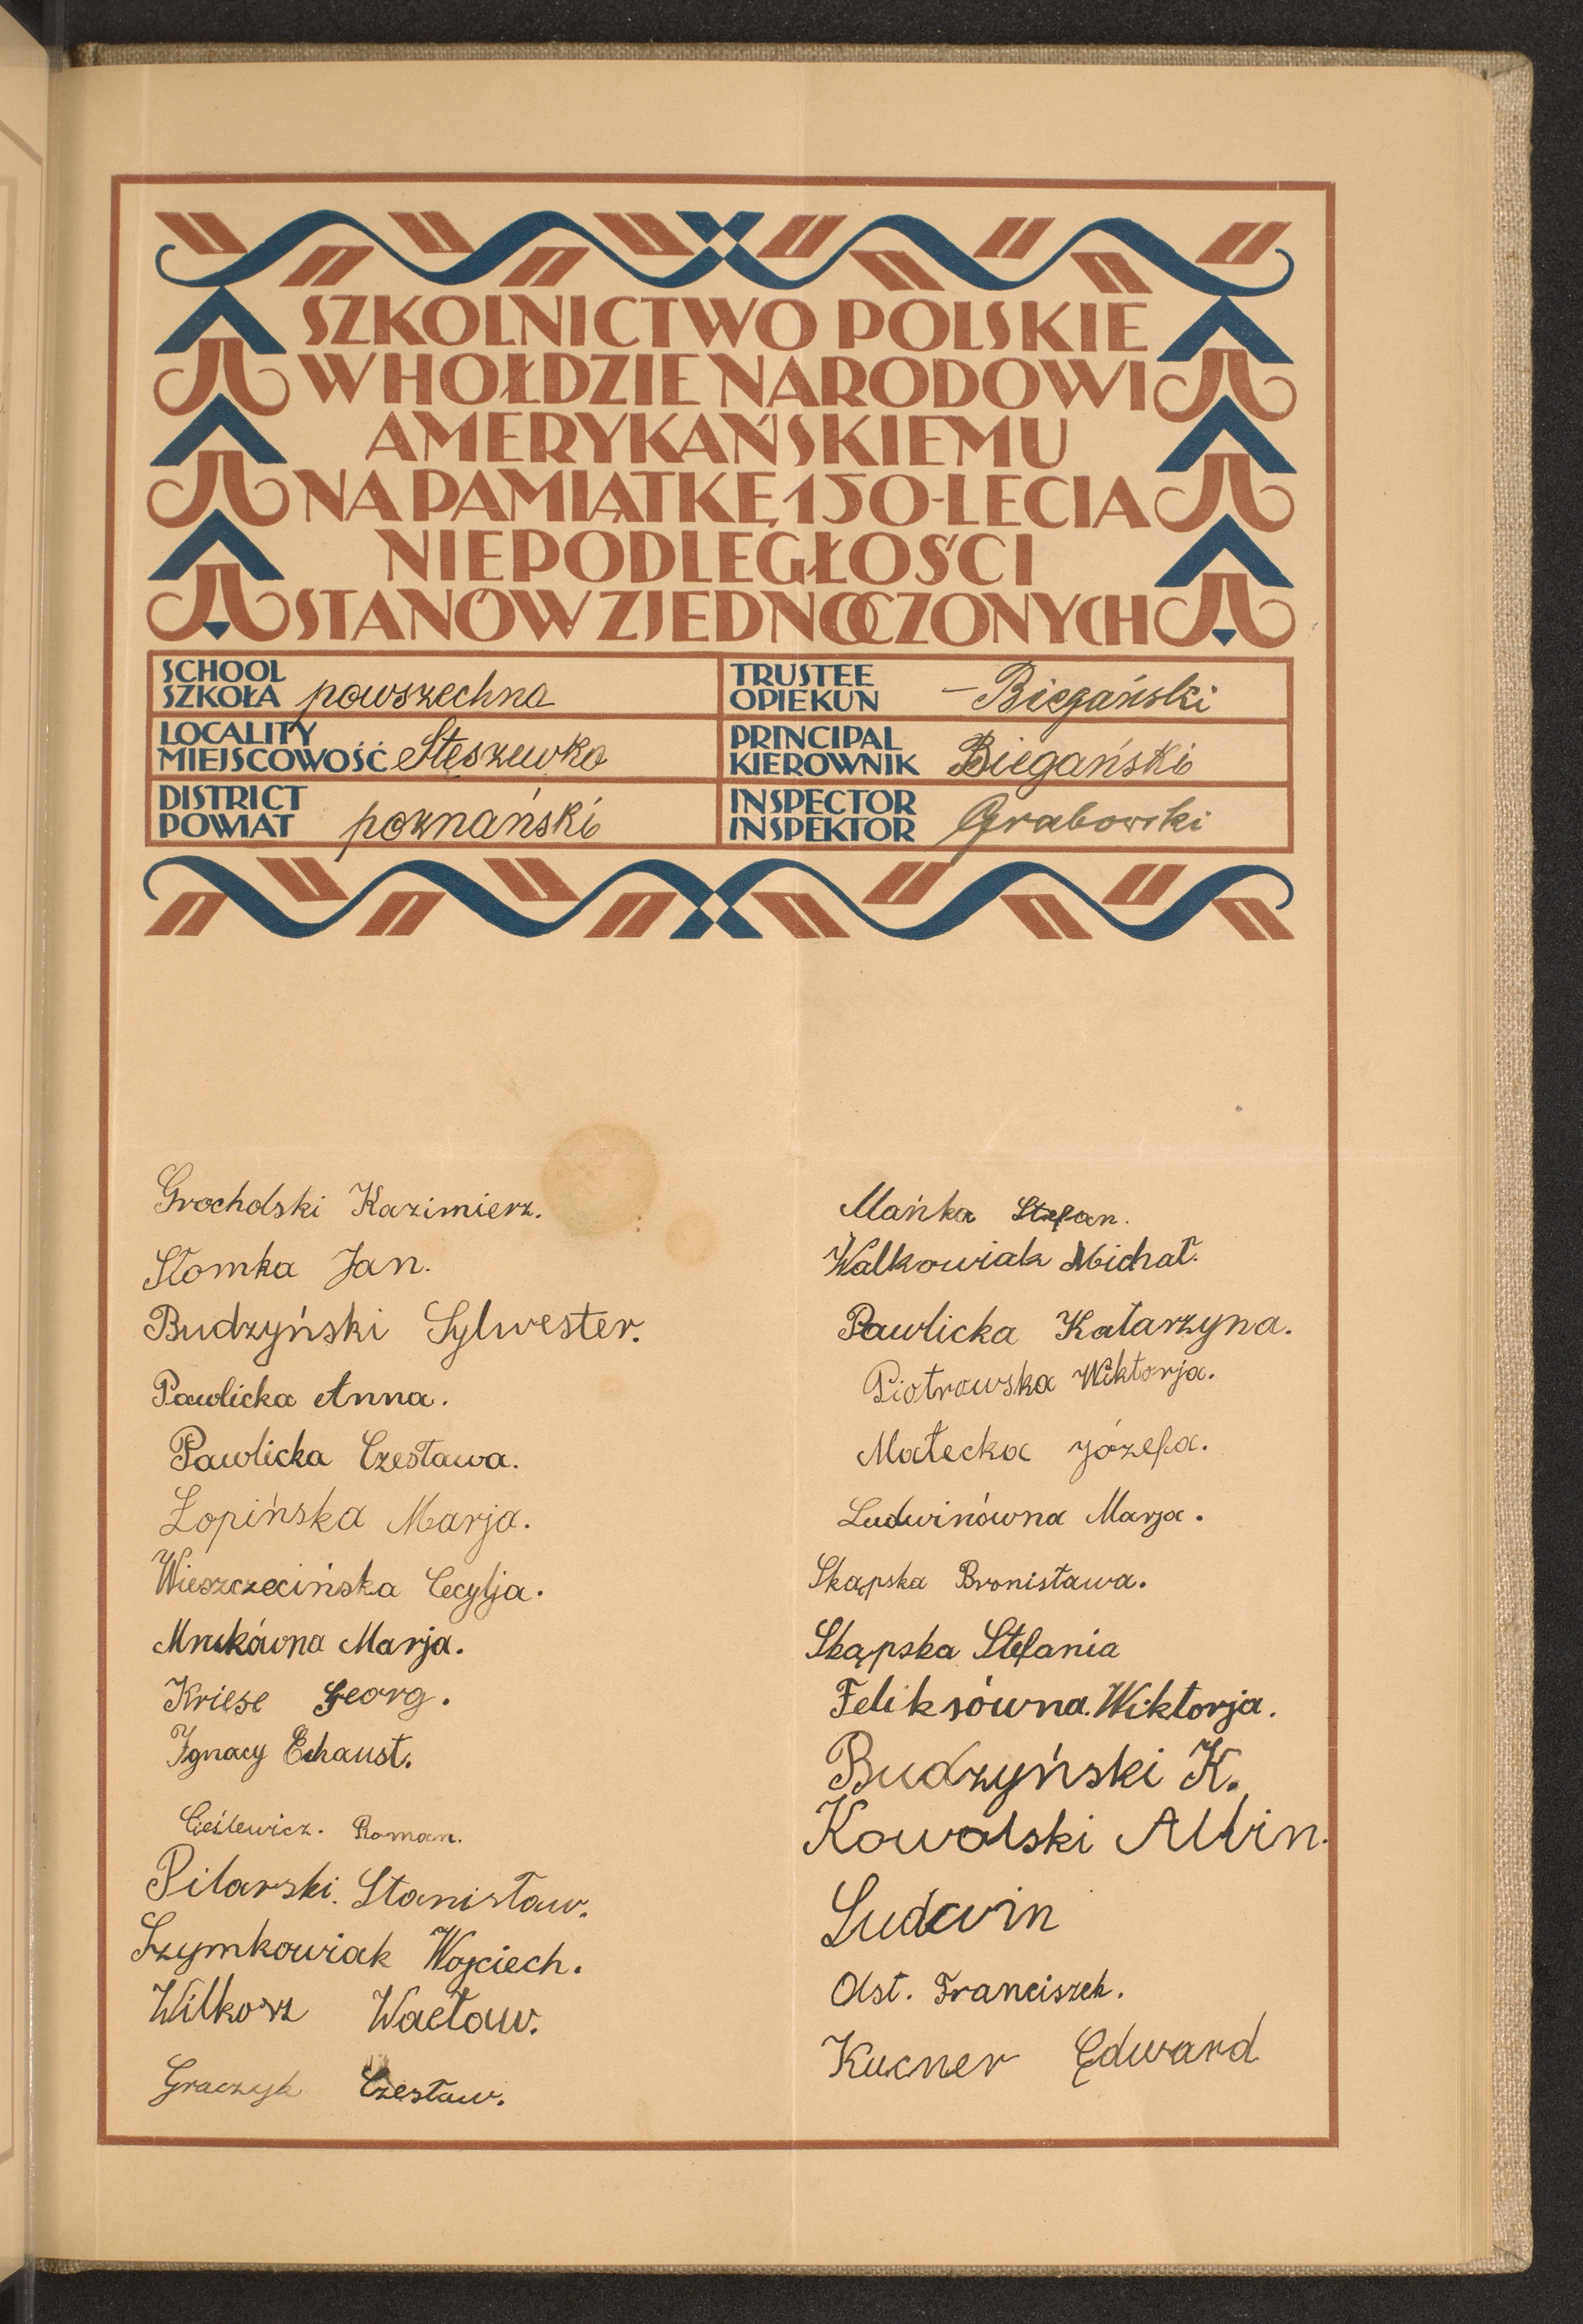 SZKOLNICTWO POLSKIE
W HOŁDZIE NARODOWI
AMERYKAŃSKIEMU
NA PAMIĄTKĘ 150-LECIA
NIEPODLEGŁOŚCI
STANÓW ZJEDNOCZONYCH
SCHOOL
SZKOŁA powszechna
LOCALITY
MIEJSCOWOŚĆ Stęszewko
DISTRICT
POWIAT poznański
TRUSTEE
OPIEKUN – Biegański
PRINCIPAL
KIEROWNIK Biegański
INSPECTOR
INSPEKTOR Grabowski
Grocholski Kazimierz.
Słomka Jan.
Budzyński Sylwester.
Pawlicka Anna.
Pawlicka Czesława.
Łopińska Marja.
Wieszczecińska Cecylja.
Mrukówna Marja.
Kriese Georg.
Ignacy Echaust.
Cieślewicz. Roman.
Pilarski. Stanisław.
Szymkowiak Wojciech.
Wilkosz Wacław.
Graczyk Czesław.
Mańka Stefan.
Walkowiak Michał.
Pawlicka Katarzyna.
Piotrowska Wiktorja.
Małecka Józefa.
Ludwinówna Marja.
Skąpska Bronisława.
Skąpska Stefania
Feliksówna. Wiktorja.
Budzyński K.
Kowalski Albin.
Ludwin
Ost. Franciszek.
Kucner Edward